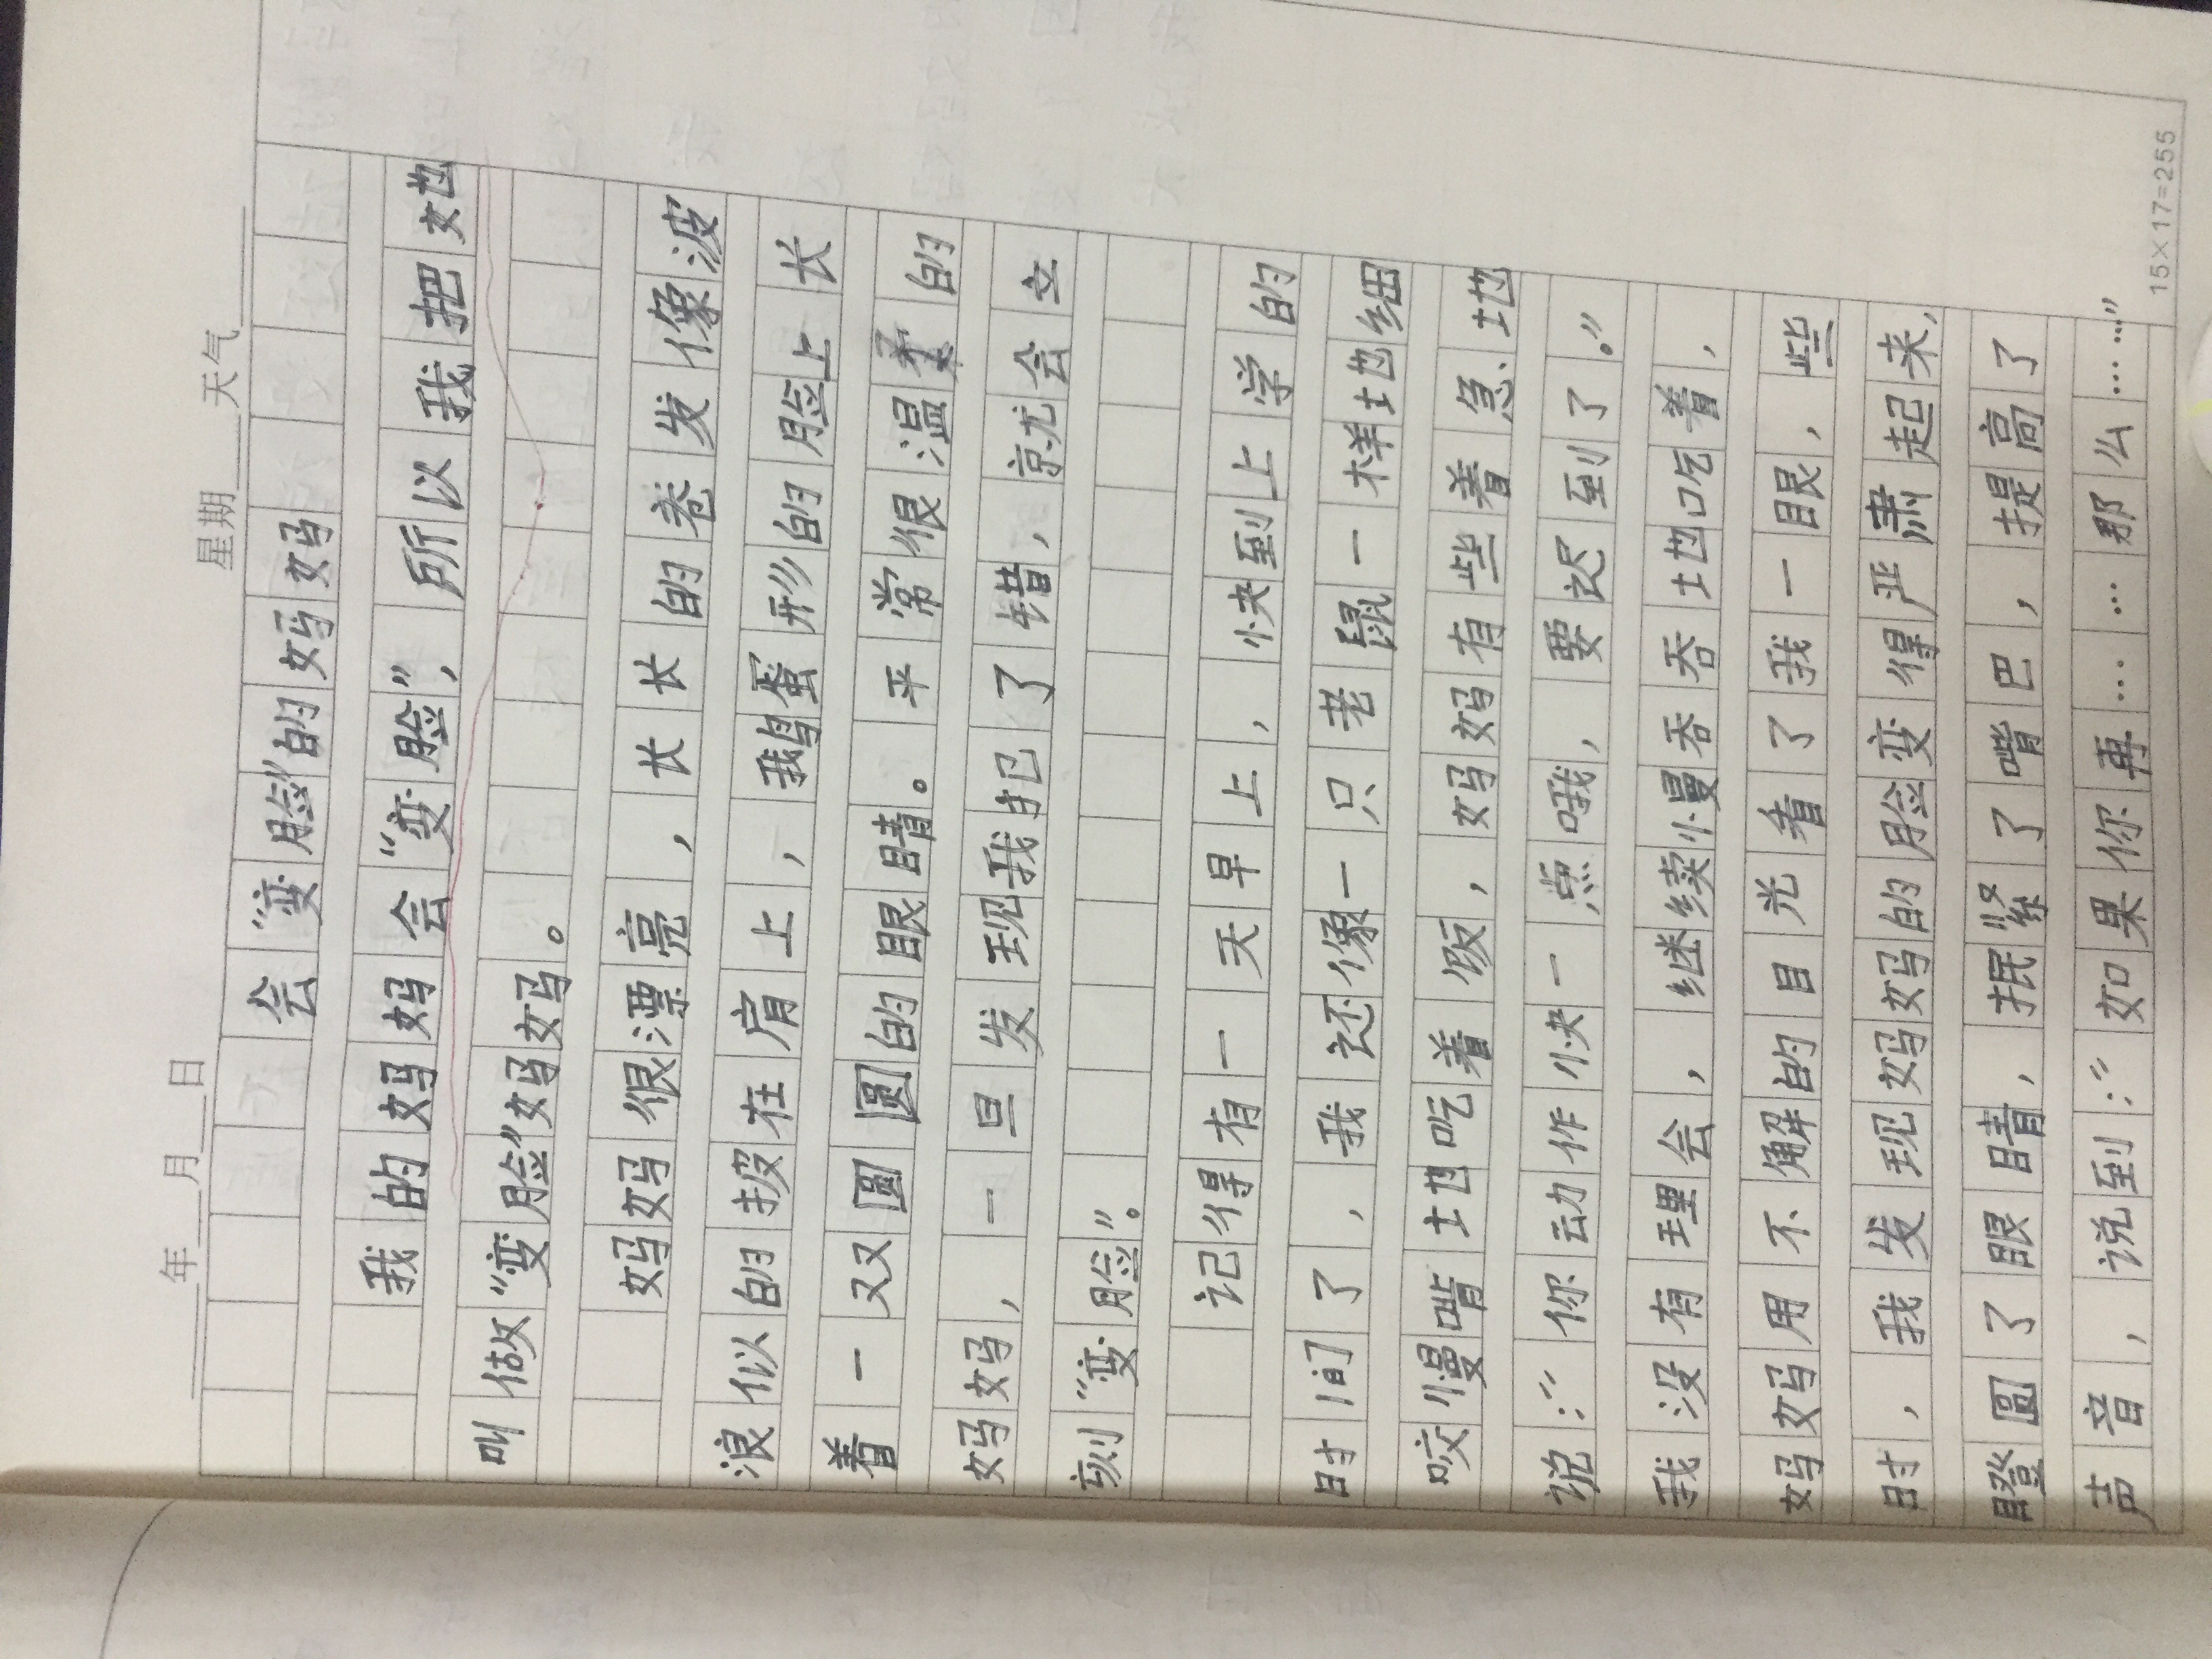 年 月 日 星期 天气
会“变脸”的妈妈
我的妈妈会“变脸”，所以我把她
叫做“变脸”妈妈。
妈妈很漂亮，长长的卷发像波
浪似的披在肩上，鹅蛋形的脸上长
着一双圆圆的眼睛。平常很温柔的
妈妈，一旦发现我犯了错，就会立
刻“变脸”。
记得有一天早上，快到上学的
时间了，我还像一只老鼠一样地细
咬慢嘴地吃着饭，妈妈有些着急地
说：“你动作快一点哦，要迟到了。”
我没有理会，继续慢吞吞地吃着，
妈妈用不解的目光看了我一眼，些
时，我发现妈妈的脸变得严肃起来，
瞪圆了眼睛，抿紧了嘴巴，提高了
声音，说到：“如果你再……那么……”
15×17=255